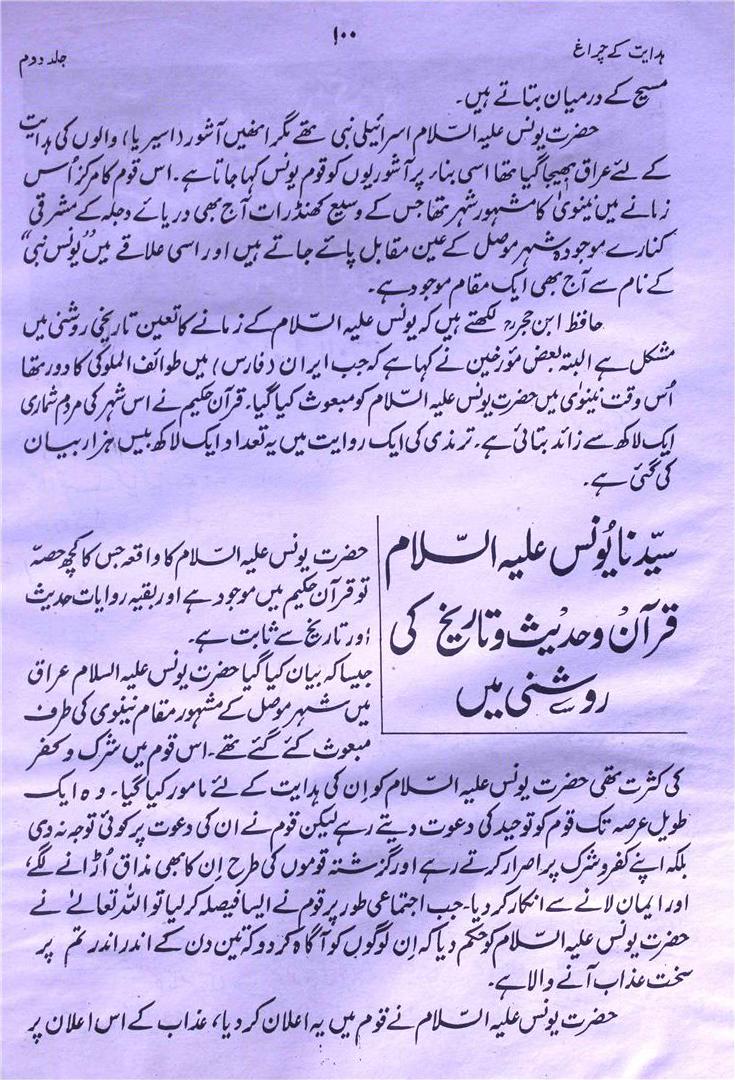 ہدایت کے چراغ
۱۰۰
جلد دوم
مسیح کے درمیان بتاتے ہیں۔
حضرت یونس علیہ السّلام اسرائیلی نبی تھے مگر انھیں آشور (اسیریا) والوں کی ہدایت
کے لئے عراق بھیجا گیا تھا اسی بنار پر آشوریوں کو قوم یونس کہا جاتا ہے۔ اس قوم کا مرکز اُس
زمانے میں نینویٰ کا مشہور شہر تھا جس کے وسیع کھنڈرات آج بھی دریائے دجلہ کے مشرقی
کنارے موجودہ شہر موصل کے عین مقابل پائے جاتے ہیں اور اسی علاقے میں "یونس نبی"
کے نام سے آج بھی ایک مقام موجود ہے۔
حافظ ابن حجرؒ لکھتے ہیں کہ یونس علیہ السّلام کے زمانے کا تعین تاریخی روشنی میں
مشکل ہے البتہ بعض مؤرخین نے کہا ہے کہ جب ایران (فارس) میں طوائف الملوکی کا دور تھا
اُس وقت نینوٰی میں حضرت یونس علیہ السّلام کو مبعوث کیا گیا۔ قرآن حکیم نے اس شہر کی مردم شماری
ایک لاکھ سے زائد بتائی ہے۔ ترمذی کی ایک روایت میں یہ تعداد ایک لاکھ بیس ہزار بیان
کی گئی ہے۔
سیّدنا یُونس علیہ السّلام
قرآن و حدیث و تاریخ کی
روشنی میں
حضرت یونس علیہ السّلام کا واقعہ جس کا کچھ حصّہ
تو قرآن حکیم میں موجود ہے اور بقیہ روایات حدیث
اور تاریخ سے ثابت ہے۔
جیسا کہ بیان کیا گیا حضرت یونس علیہ السلام عراق
میں شہر موصل کے مشہور مقام نینوی کی طرف
مبعوث کئے گئے تھے۔ اس قوم میں شرک و کفر
کی کثرت تھی حضرت یونس علیہ السّلام کو اِن کی ہدایت کے لئے مامور کیا گیا۔ وہ ایک
طویل عرصہ تک قوم کو توحید کی دعوت دیتے رہے لیکن قوم نے ان کی دعوت پر کوئی توجہ نہ دی
بلکہ اپنے کفر و شرک پر اصرار کرتے رہے اور گزشتہ قوموں کی طرح اِن کا بھی مذاق اُڑانے لگے،
اور ایمان لانے سے انکار کر دیا۔ جب اجتماعی طور پر قوم نے ایسا فیصلہ کر لیا تو اللہ تعالےٰ نے
حضرت یونس علیہ السّلام کو حکم دیا کہ اِن لوگوں کو آگاہ کر دو کہ تین دن کے اندر اندر تم پر
سخت عذاب آنے والا ہے۔
حضرت یونس علیہ السّلام نے قوم میں یہ اعلان کر دیا، عذاب کے اس اعلان پر